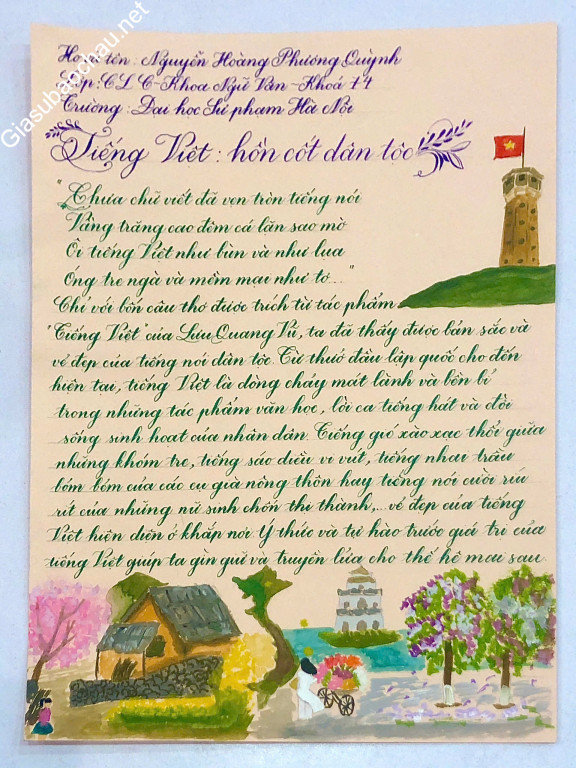 Giasubaochau.net
Họ và tên : Nguyễn Hoàng Phương Quỳnh
Lớp : CLC - Khoa Ngữ Văn - Khoá 74
Trường : Đại học Sư phạm Hà Nội
Tiếng Việt : hồn cốt dân tộc
"Chưa chữ viết đã vẹn tròn tiếng nói
Vầng trăng cao đêm cá lặn sao mờ
Ôi tiếng Việt như bùn và như lụa
Óng tre ngà và mềm mại như tơ..."
Chỉ với bốn câu thơ được trích từ tác phẩm
"Tiếng Việt" của Lưu Quang Vũ, ta đã thấy được bản sắc và
vẻ đẹp của tiếng nói dân tộc. Từ thuở đầu lập quốc cho đến
hiện tại, tiếng Việt là dòng chảy mát lành và bền bỉ
trong những tác phẩm văn học, lời ca tiếng hát và đời
sống sinh hoạt của nhân dân. Tiếng gió xào xạc thổi giữa
những khóm tre, tiếng sáo diều vi vút, tiếng nhai trầu
bỏm bẻm của các cụ già nông thôn hay tiếng nói cười ríu
rít của những nữ sinh chốn thị thành,... vẻ đẹp của tiếng
Việt hiện diện ở khắp nơi. Ý thức và tự hào trước giá trị của
tiếng Việt giúp ta gìn giữ và truyền lửa cho thế hệ mai sau.